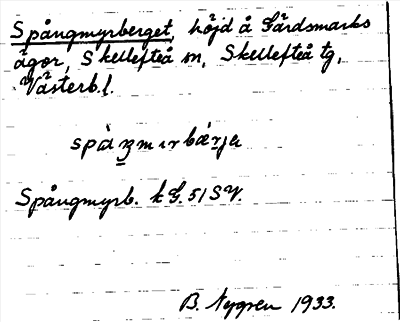 Spångmyrberget, höjd å Gärdsmarks
ägor, Skellefteå sn, Skellefteå tg,
Västerb.l.
Spångmyrb. k G. 51 SV.
B. Nygren 1933.